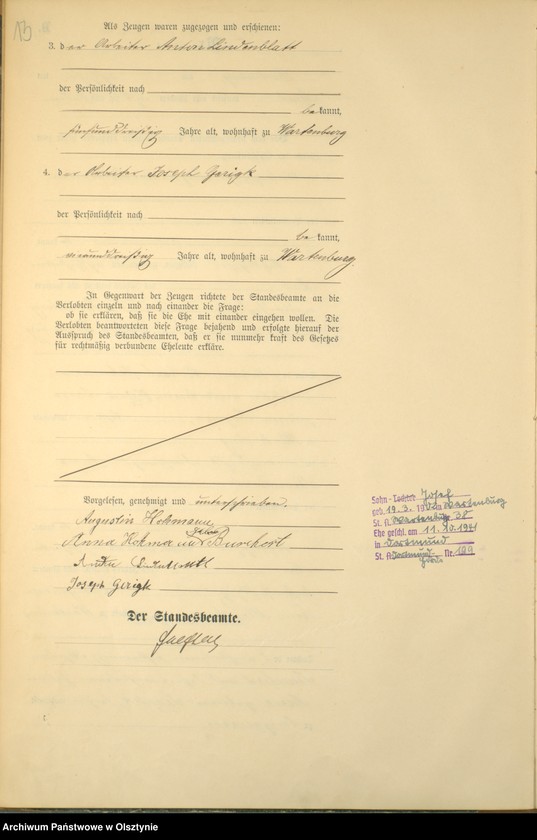 13
Als Zeugen waren zugezogen und erschienen:
3. der Arbeiter Anton Lindenblatt
der Persönlichkeit nach
bekannt,
fünfunddreißig Jahre alt, wohnhaft zu Wartenburg
4. der Arbeiter Joseph Gerigk
der Persönlichkeit nach
be kannt,
Jahre alt, wohnhaft zu Wartenburg.
In Gegenwart der Zeugen richtete der Standesbeamte an die
Verlobten einzeln und nach einander die Frage:
ob sie erklären, daß sie die Ehe mit einander eingehen wollen. Die
Verlobten beantworteten diese Frage bejahend und erfolgte hierauf der
Ausspruch des Standesbeamten, daß er sie nunmehr kraft des Gesetzes
für rechtmäßig verbundene Eheleute erkläre.
Vorgelesen, genehmigt und unterschrieben.
Augustin Hohmann
Anna Hohmann geborene Burchert
Anton Lindenblatt
Joseph Gerigk
Der Standesbeamte.
Sohn - Tochter Josef
geb. 19. 3. in Wartenburg
St. A. Wartenburg 38
Ehe geschl. am 11. 10. 1941
in Dortmund
St. A. Dortmund Nr. 109
Archiwum Państwowe w Olsztynie